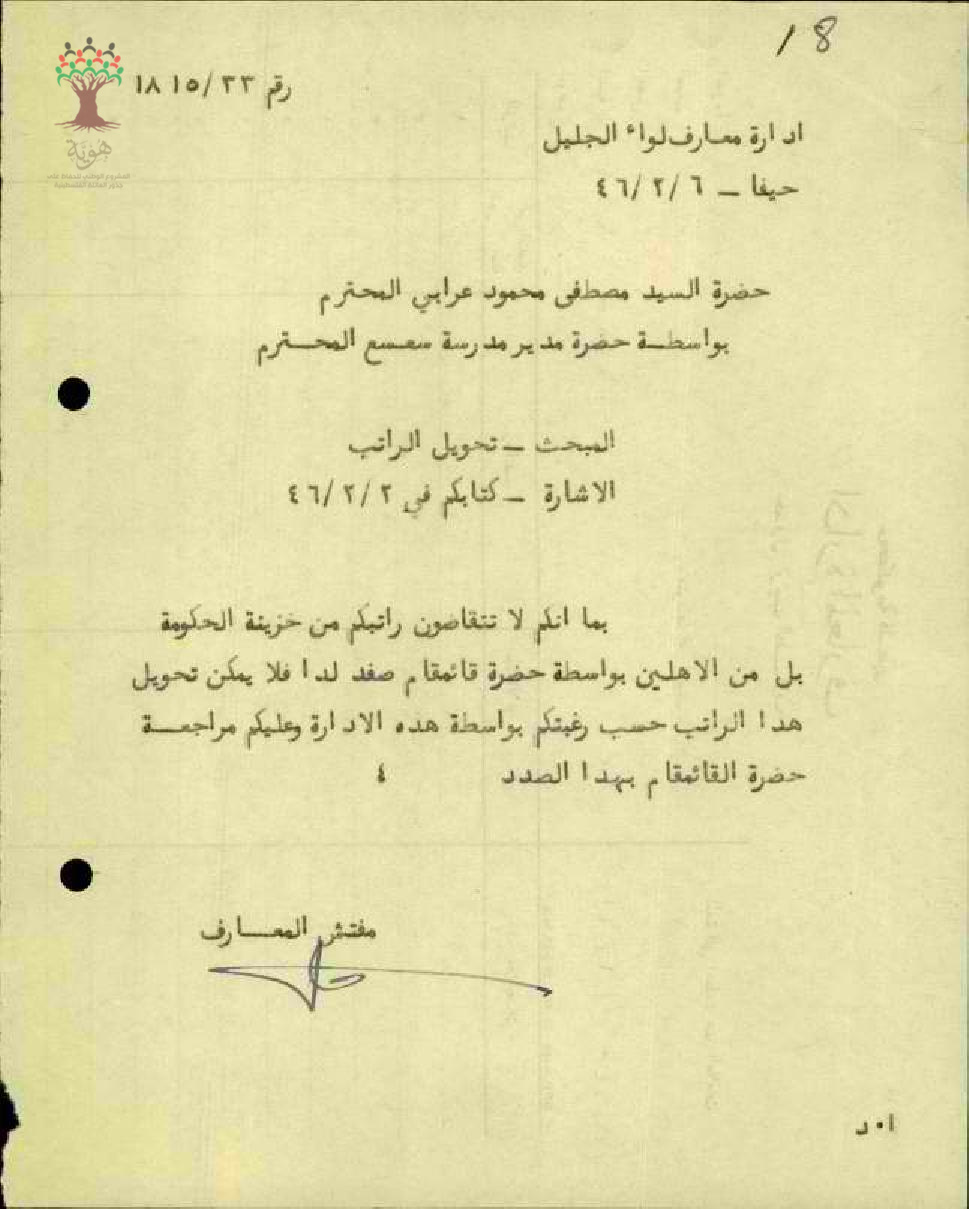 18
رقم ٣٣/ ١٨١٥
هوية
ادارة معارف لواء الجليل
حيفا ــ ٤٦/٢/٦
حضرة السيد مصطفى محمود عرابي المحترم
بواسطة حضرة مدير مدرسة سعسع المحترم
المبحث ــ تحويل الراتب
الاشارة ــ كتابكم في ٤٦/٢/٢
بما انكم لا تتقاضون راتبكم من خزينة الحكومة
بل من الاهلين بواسطة حضرة قائمقام صفد لدا فلا يمكن تحويل
هدا الراتب حسب رغبتكم بواسطة هده الادارة وعليكم مراجعة
حضرة القائمقام بهدا الصدد ٤
مفتش المعارف
ا٠د